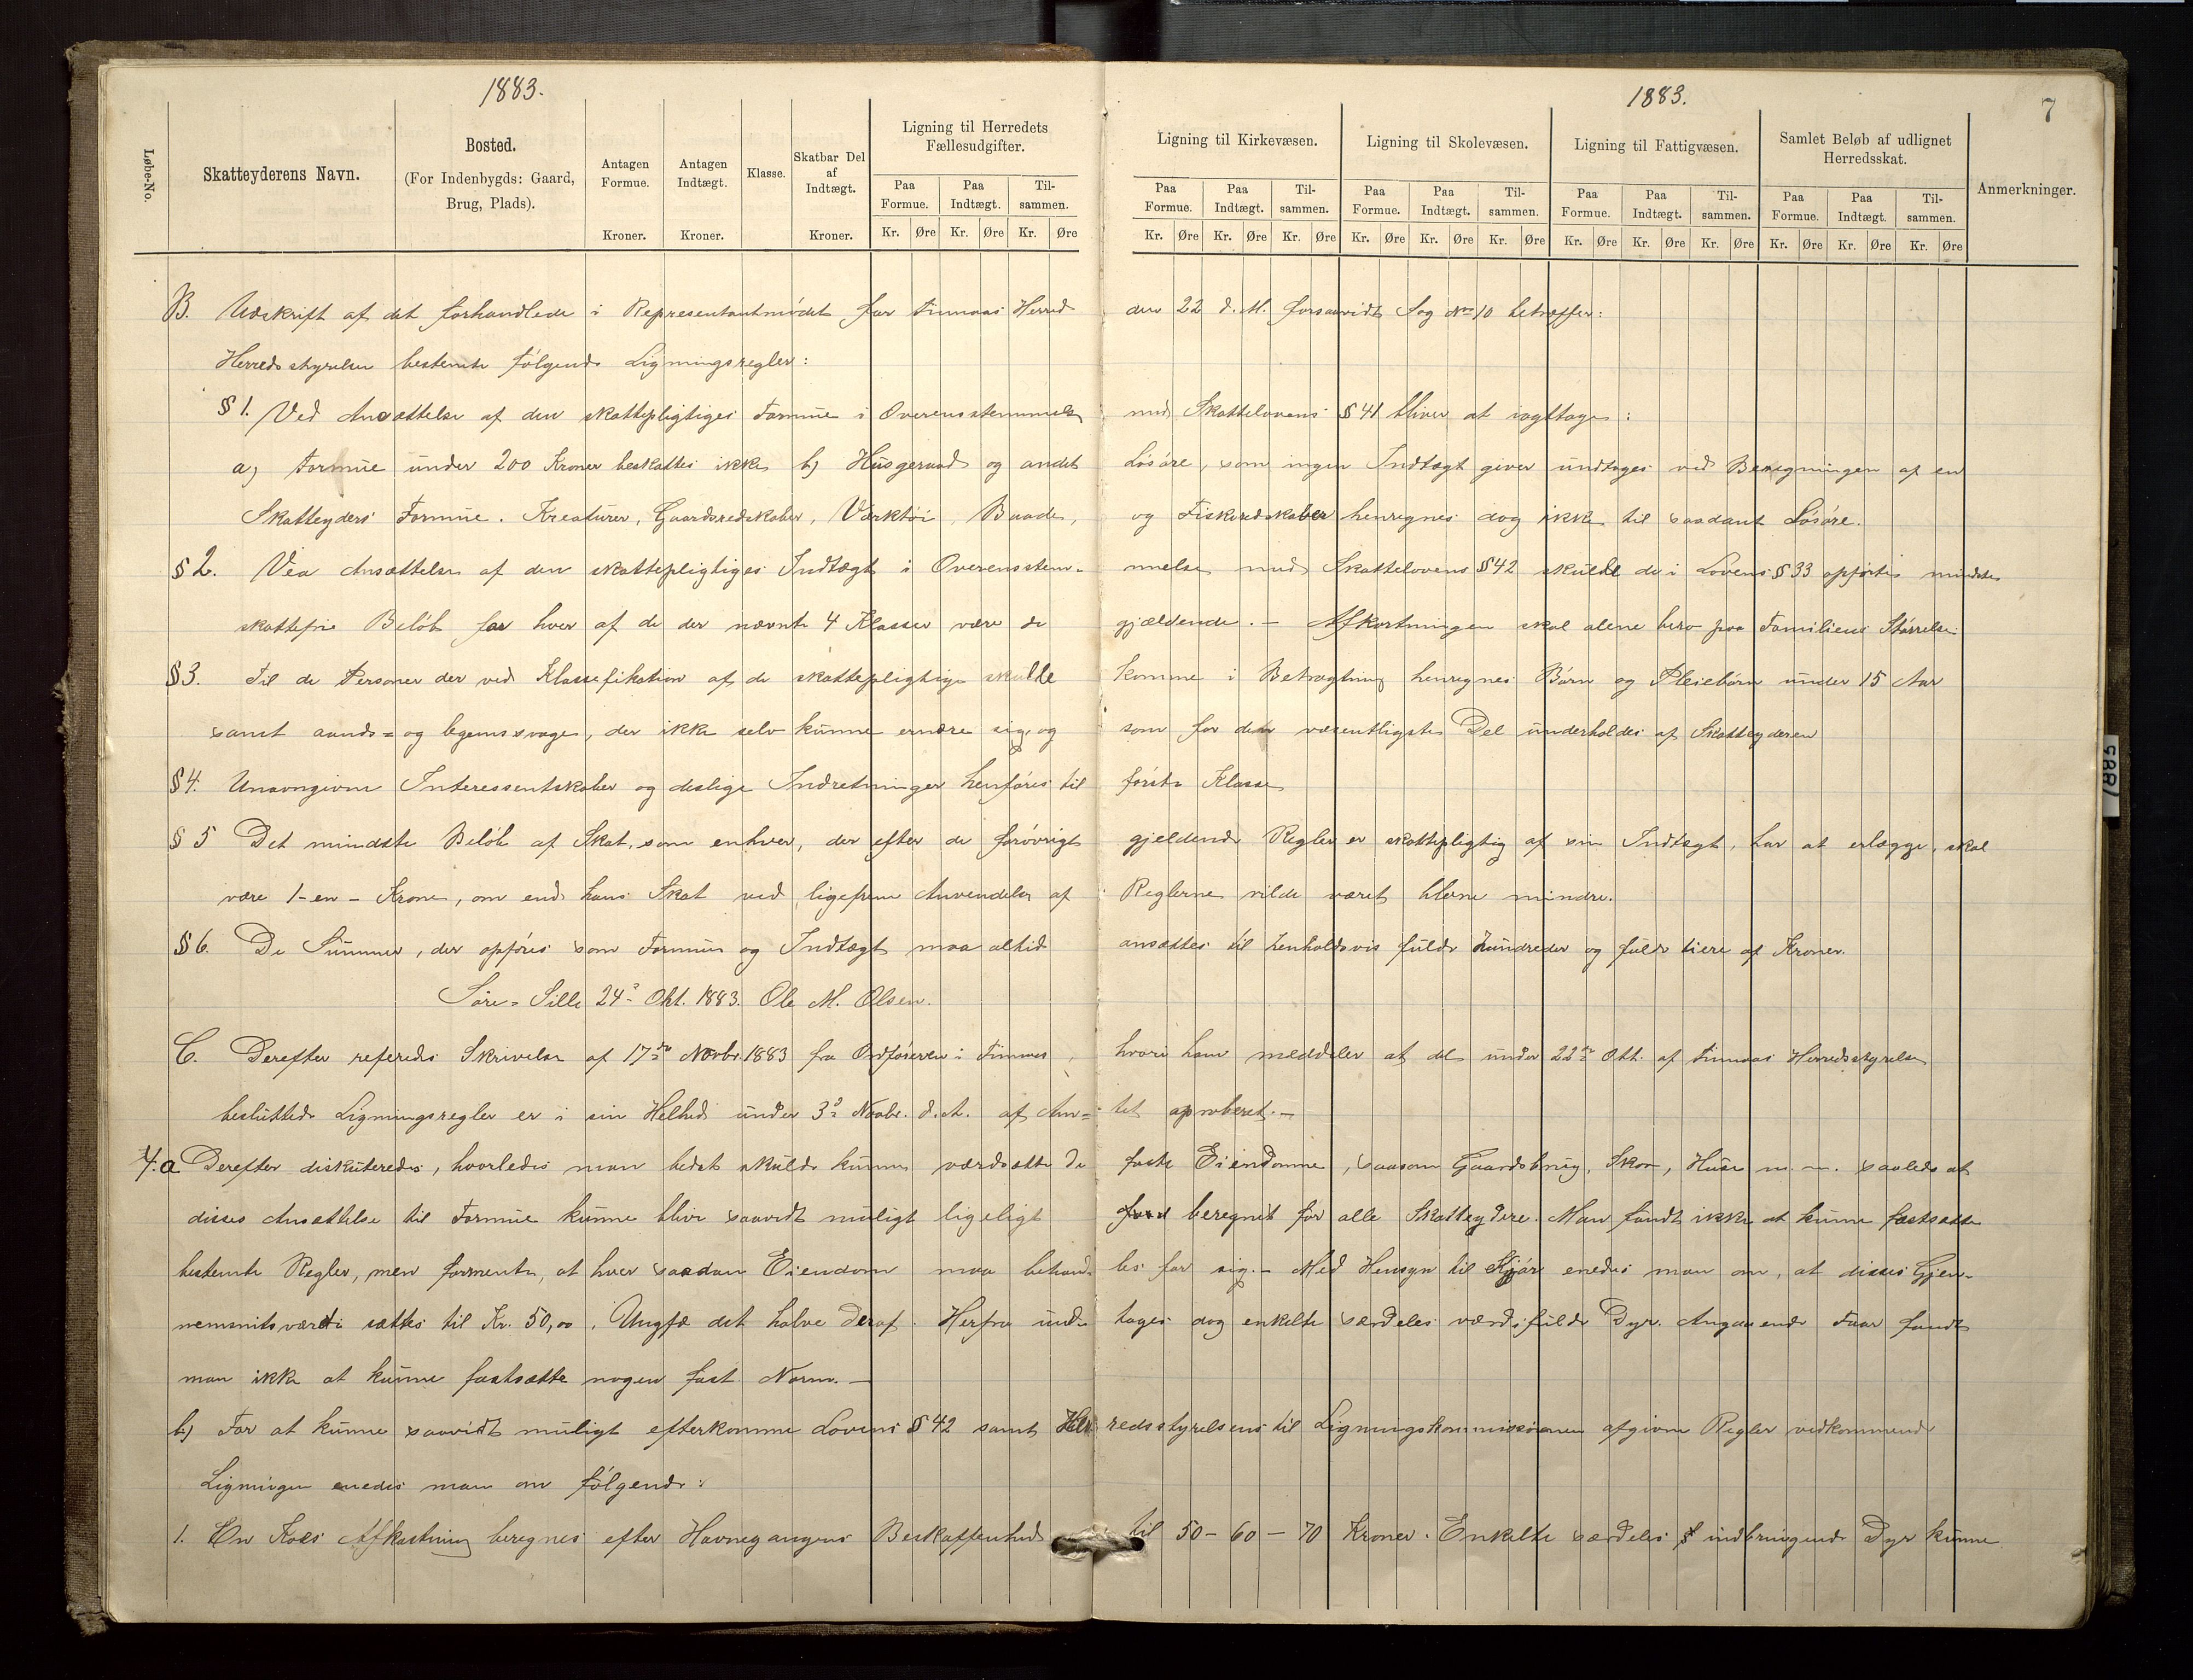 1883.
1883.
7
Løbe-No.
Skatteyderens Navn.
Bosted.
(For Indenbygds: Gaard,
Brug, Plads).
Antagen
Formue.
Kroner.
Antagen
Indtægt.
Kroner.
Klasse.
Skatbar Del
af
Indtægt.
Kroner.
Ligning til Herredets
Fællesudgifter.
Ligning til Kirkevæsen.
Ligning til Skolevæsen.
Ligning til Fattigvæsen.
Samlet Beløb af udlignet
Herredsskat.
Anmerkninger.
Paa Formue. Paa Indtægt. Til-sammen. Paa Formue. Paa Indtægt. Til-sammen. Paa Formue. Paa Indtægt. Til-sammen. Paa Formue. Paa Indtægt. Til-sammen. Paa Formue. Paa Indtægt. Til-sammen.
Kr. Øre Kr. Øre Kr. Øre Kr. Øre Kr. Øre Kr. Øre Kr. Øre Kr. Øre Kr. Øre Kr. Øre Kr. Øre Kr. Øre Kr. Øre Kr. Øre Kr. Øre
B. Udskrift af det forhandlede i Representantmødet for Finnaas Herred den 22 d. M. forsaavidt Sag No 10 betræffer:
Herredsstyrelsen bestemte følgende Ligningsregler:
§ 1. Ved Ansættelse af den skattepligtiges Formue i Overensstemmelse med Skattelovens § 41 bliver at iagttage:
a) Formue under 200 Kroner beskattes ikke b) Husgeraad og andet Løsøre, som ingen Indtægt giver undtages ved Beregningen af en
Skatteyders Formue. Kreaturer, Gaardsredskaber, Værktøi, Baade, og Fiskeredskaber henregnes dog ikke til saadant Løsøre.
§ 2. Ved Ansættelse af den skattepligtiges Indtægt i Overensstem- melse med Skattelovens § 42 skulde de i Lovens § 33 opførte mindste
skattefrie Beløb for hver af de der nævnte 4 Klasser være de gjældende. – Afkortningen skal alene bero paa Familiens Størrelse
§ 3. Til de Personer der ved Klassefikation af de skattepligtige skulde komme i Betragtning henregnes Børn og Pleiebørn under 15 Aar
samt aands= og legemssvage, der ikke selv kunne ernære sig, og som for den væsentligste Del underholdes af Skatteyderen
§ 4. Unavngivne Interessentskaber og deslige Indretninger henføres til første Klasse
§ 5 Det mindste Beløb af Skat, som enhver, der efter de forøvrigt gjeldende Regler er skattepligtig af sin Indtægt, har at erlægge, skal
være 1-en- Krone, om end hans Skat ved ligefrem Anvendelse af Reglerne vilde været bleve mindre.
§ 6. De Summer, der opføres som Formue og Indtægt maa altid ansættes til henholdsvis fulde Hundreder og fulde tiere af Kroner.
24de Okt. 1883. Ole M. Olsen.
C. Derefter referedes Skrivelse af 17de Novbr. 1883 fra Ordføreren i Finnaas, hvori han meddeler at de under 22de Okt. af Finnaas Herredsstyrelse
besluttede Ligningsregler er i sin Helhed under 3de Novbr. d. A. af Am= tet aproberet. –
4.a Derefter diskuteredes, hvorledes man bedst skulde kunne værdsætte de faste Eiendomme, saasom Gaardsbrug, Skov, Huse m. m. saaledes at
disses Ansættelse til Formue kunne blive saavidt muligt ligeligt beregnet for alle Skatteydere. Man fandt ikke at kunne fastsætte
bestemte Regler, men formente, at hver saadan Eiendom maa behand- les for sig. – Med Hensyn til Kjør enedes man om, at disses Gjen-
nemsnitsværdi sættes til Kr. 50,00. Ungfæ det halve deraf. Herfra und- tages dog enkelte særdeles værdifulde Dyr. Angaaende Faar fandt
man ikke at kunne fastsætte nogen fast Norm. –
b) For at kunne saavidt muligt efterkomme Lovens § 42 samt Her redsstyrelsens til Ligningskommissionen afgivne Regler vedkommende
Ligningen enedes man om følgende:
1. En Koes Afkastning beregnes efter Havnegangens Beskaffenhed til 50 – 60 – 70 Kroner. Enkelte særdeles indbringende Dyr kunne